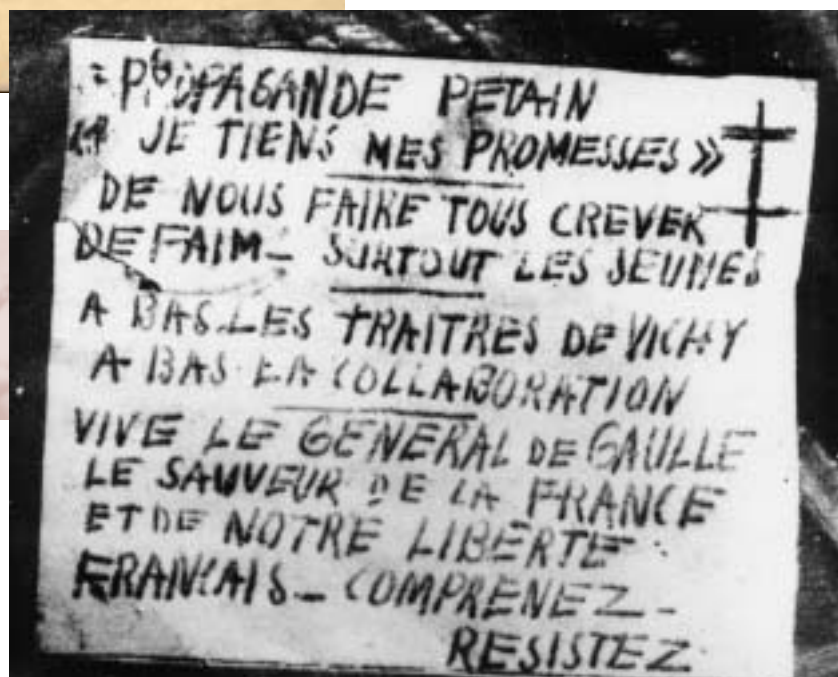 = PROPAGANDE PETAIN
« JE TIENS MES PROMESSES »
DE NOUS FAIRE TOUS CREVER
DE FAIM_ SURTOUT LES JEUNES
A BAS LES TRAITRES DE VICHY
A BAS LA COLLABORATION
VIVE LE GENERAL DE GAULLE
LE SAUVEUR DE LA FRANCE
ET DE NOTRE LIBERTE
FRANCAIS_ COMPRENEZ_
RESISTEZ